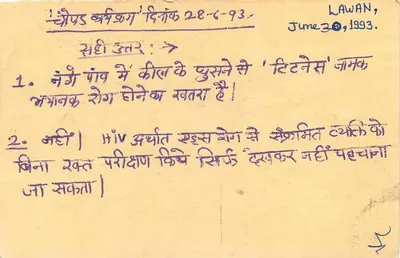 'चौपड कार्यक्रम' दिनांक 28-6-93.
LAWAN,
June 30, 1993.
सही उत्तर : →
1. नंगे पांव में कील के घुसने से 'टिटनेस' नामक
भयानक रोग होने का खतरा है।
2. नहीं। HiV अर्थात एड्स रोग से संक्रमित व्यक्ति को
बिना रक्त परीक्षण किये सिर्फ देखकर नहीं पहचाना
जा सकता।